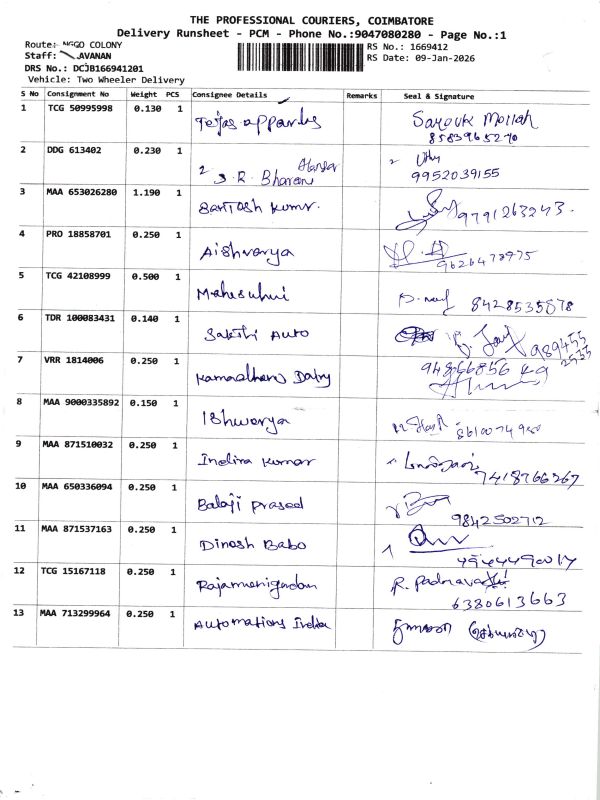 THE PROFESSIONAL COURIERS, COIMBATORE
Delivery Runsheet - PCM - Phone No.:9047080280 - Page No.:1
Route: NGGO COLONY
Staff: AVANAN
DRS No.: DCJB166941201
Vehicle: Two Wheeler Delivery
RS No.: 1669412
RS Date: 09-Jan-2026
S No Consignment No Weight PCS Consignee Details Remarks Seal & Signature
1 TCG 50995998 0.130 1 Tejas
8583965270
2 DDG 613402 0.230 1 S.R. Bharani
9952039155
3 MAA 653026280 1.190 1 Santosh Kumr. 9791263243.
4 PRO 18858701 0.250 1 Aishvarya
9626478975
5 TCG 42108999 0.500 1 8428535878
6 TDR 100083431 0.140 1 Sakthi Auto 989455
2535
7 VRR 1814006 0.250 1 Kamadhenu Dairy
8 MAA 9000335892 0.150 1 Ishwarya
9 MAA 871510032 0.250 1 Indira Kumar
7418766267
10 MAA 650336094 0.250 1 Balaji Prasad
9842502712
11 MAA 871537163 0.250 1 Dinesh Babo
12 TCG 15167118 0.250 1 R. Padnava
6380613663
13 MAA 713299964 0.250 1 Automations India